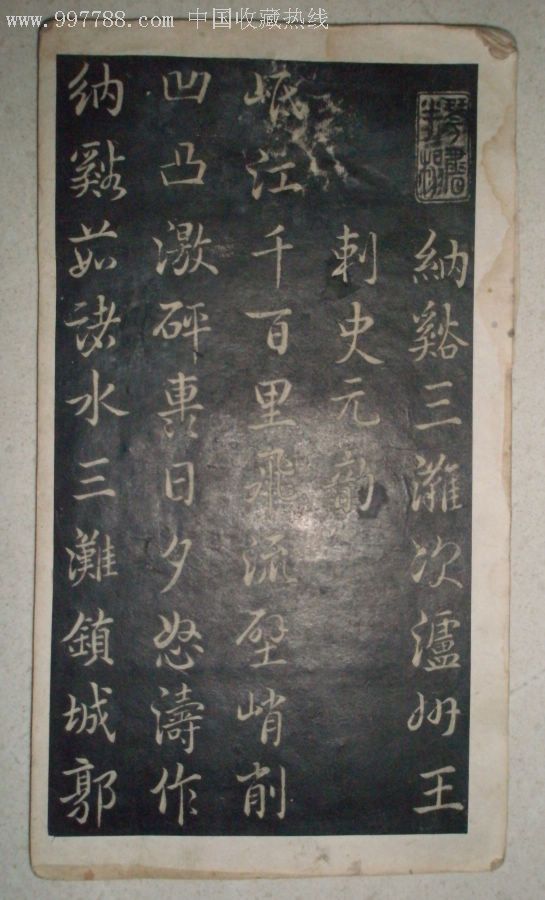 www.997788.com 中国收藏热线
納谿三灘次瀘州王
刺史元韻
岷江千百里飛流壁峭削
凹凸激砰轟日夕怒濤作
納谿茹諸水三灘鎖城郭